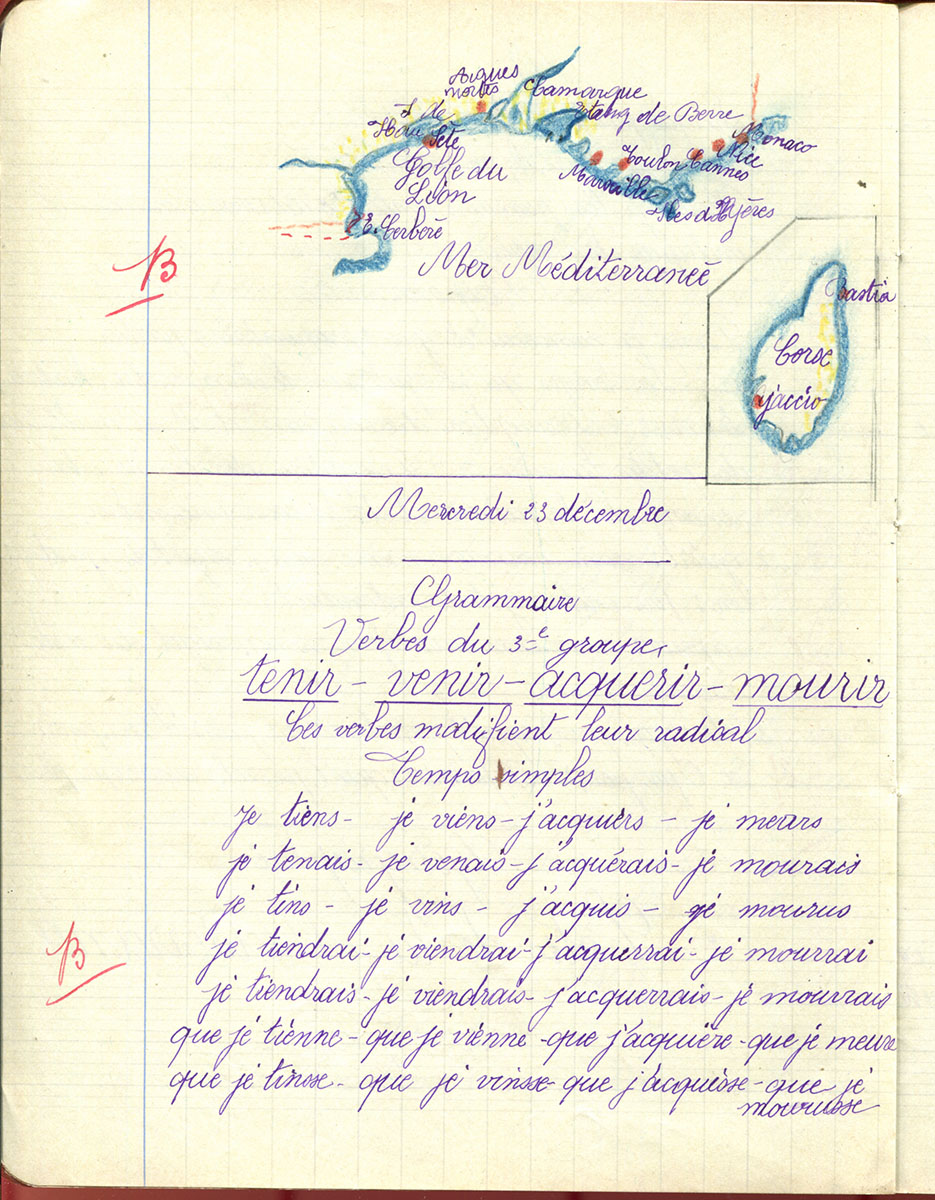 Aigues
mortes
Camargue
Etang de Berre
de
Thau Sète
Golfe du
Lion
Marseille
Toulon
Cannes
Nice
Monaco
Iles d'Hyères
Cerbère
Mer Méditerraneé
B
Bastia
Corse
Ajaccio
Mercredi 23 décembre
Grammaire
Verbes du 3e groupe
tenir - venir - acquerir - mourir
Ces verbes modifient leur radical
Temps simples
Je tiens - je viens - j'acquiers - je meurs
je tenais - je venais - j'acquérais - je mourais
je tins - je vins - j'acquis - je mourus
B
je tiendrai - je viendrai - j'acquerrai - je mourrai
je tiendrais - je viendrais - j'acquerrais - je mourrais
que je tienne - que je vienne - que j'acquière - que je meure
que je tinsse - que je vinsse - que j'acquisse - que je
mourusse